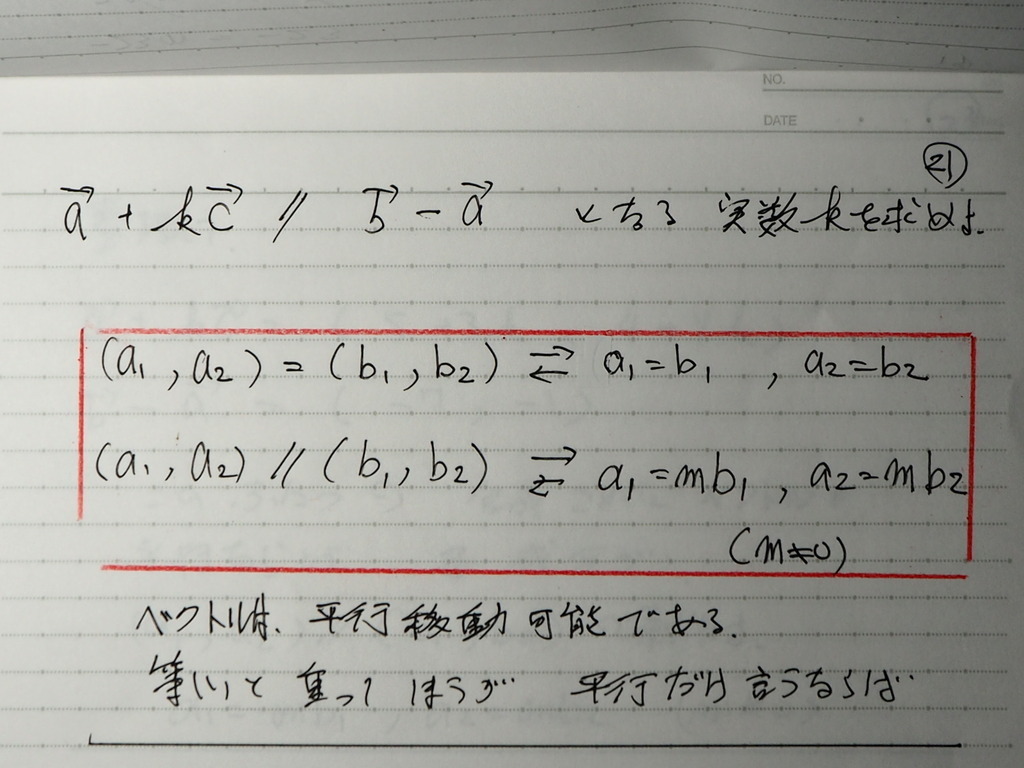 NO.
DATE
㉑
a⃗ + kc⃗ // b⃗ - a⃗ となる 実数kを求めよ.
(a₁, a₂) = (b₁, b₂) ⇄ a₁=b₁ , a₂=b₂
(a₁, a₂) // (b₁, b₂) ⇄ a₁=mb₁ , a₂=mb₂
(m≠0)
ベクトルは、平行移動可能である.
等しいと 重って しまうが… 平行だけ言うならば…